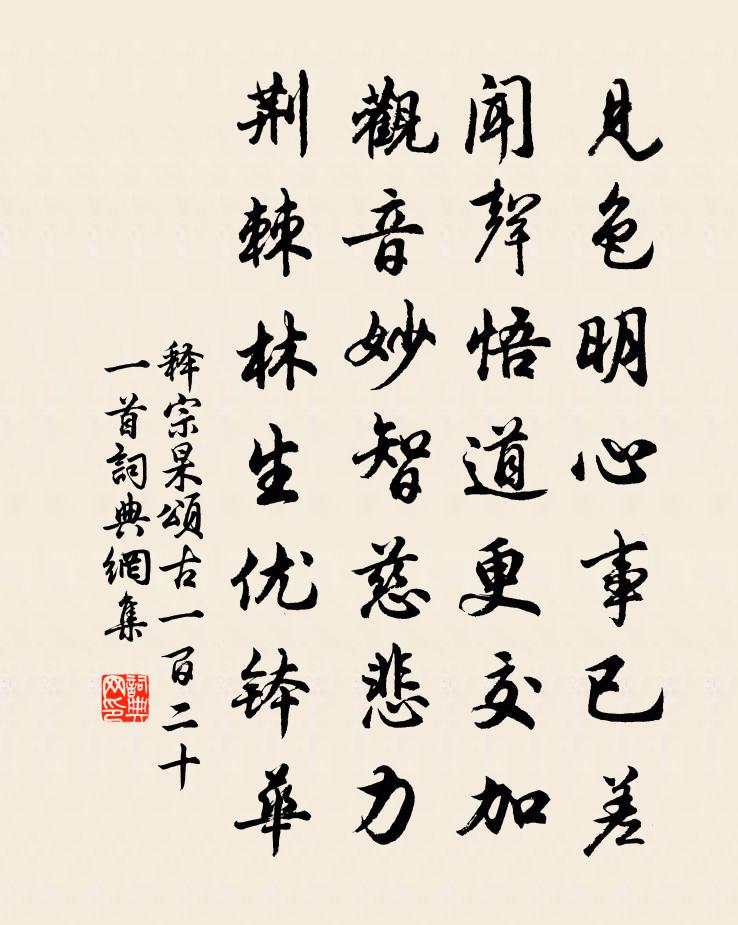 見色明心事已差
聞聲悟道更交加
觀音妙智慈悲力
荆棘林生优钵華
释宗杲頌古一百二十
一首詞典網集
詞典网印